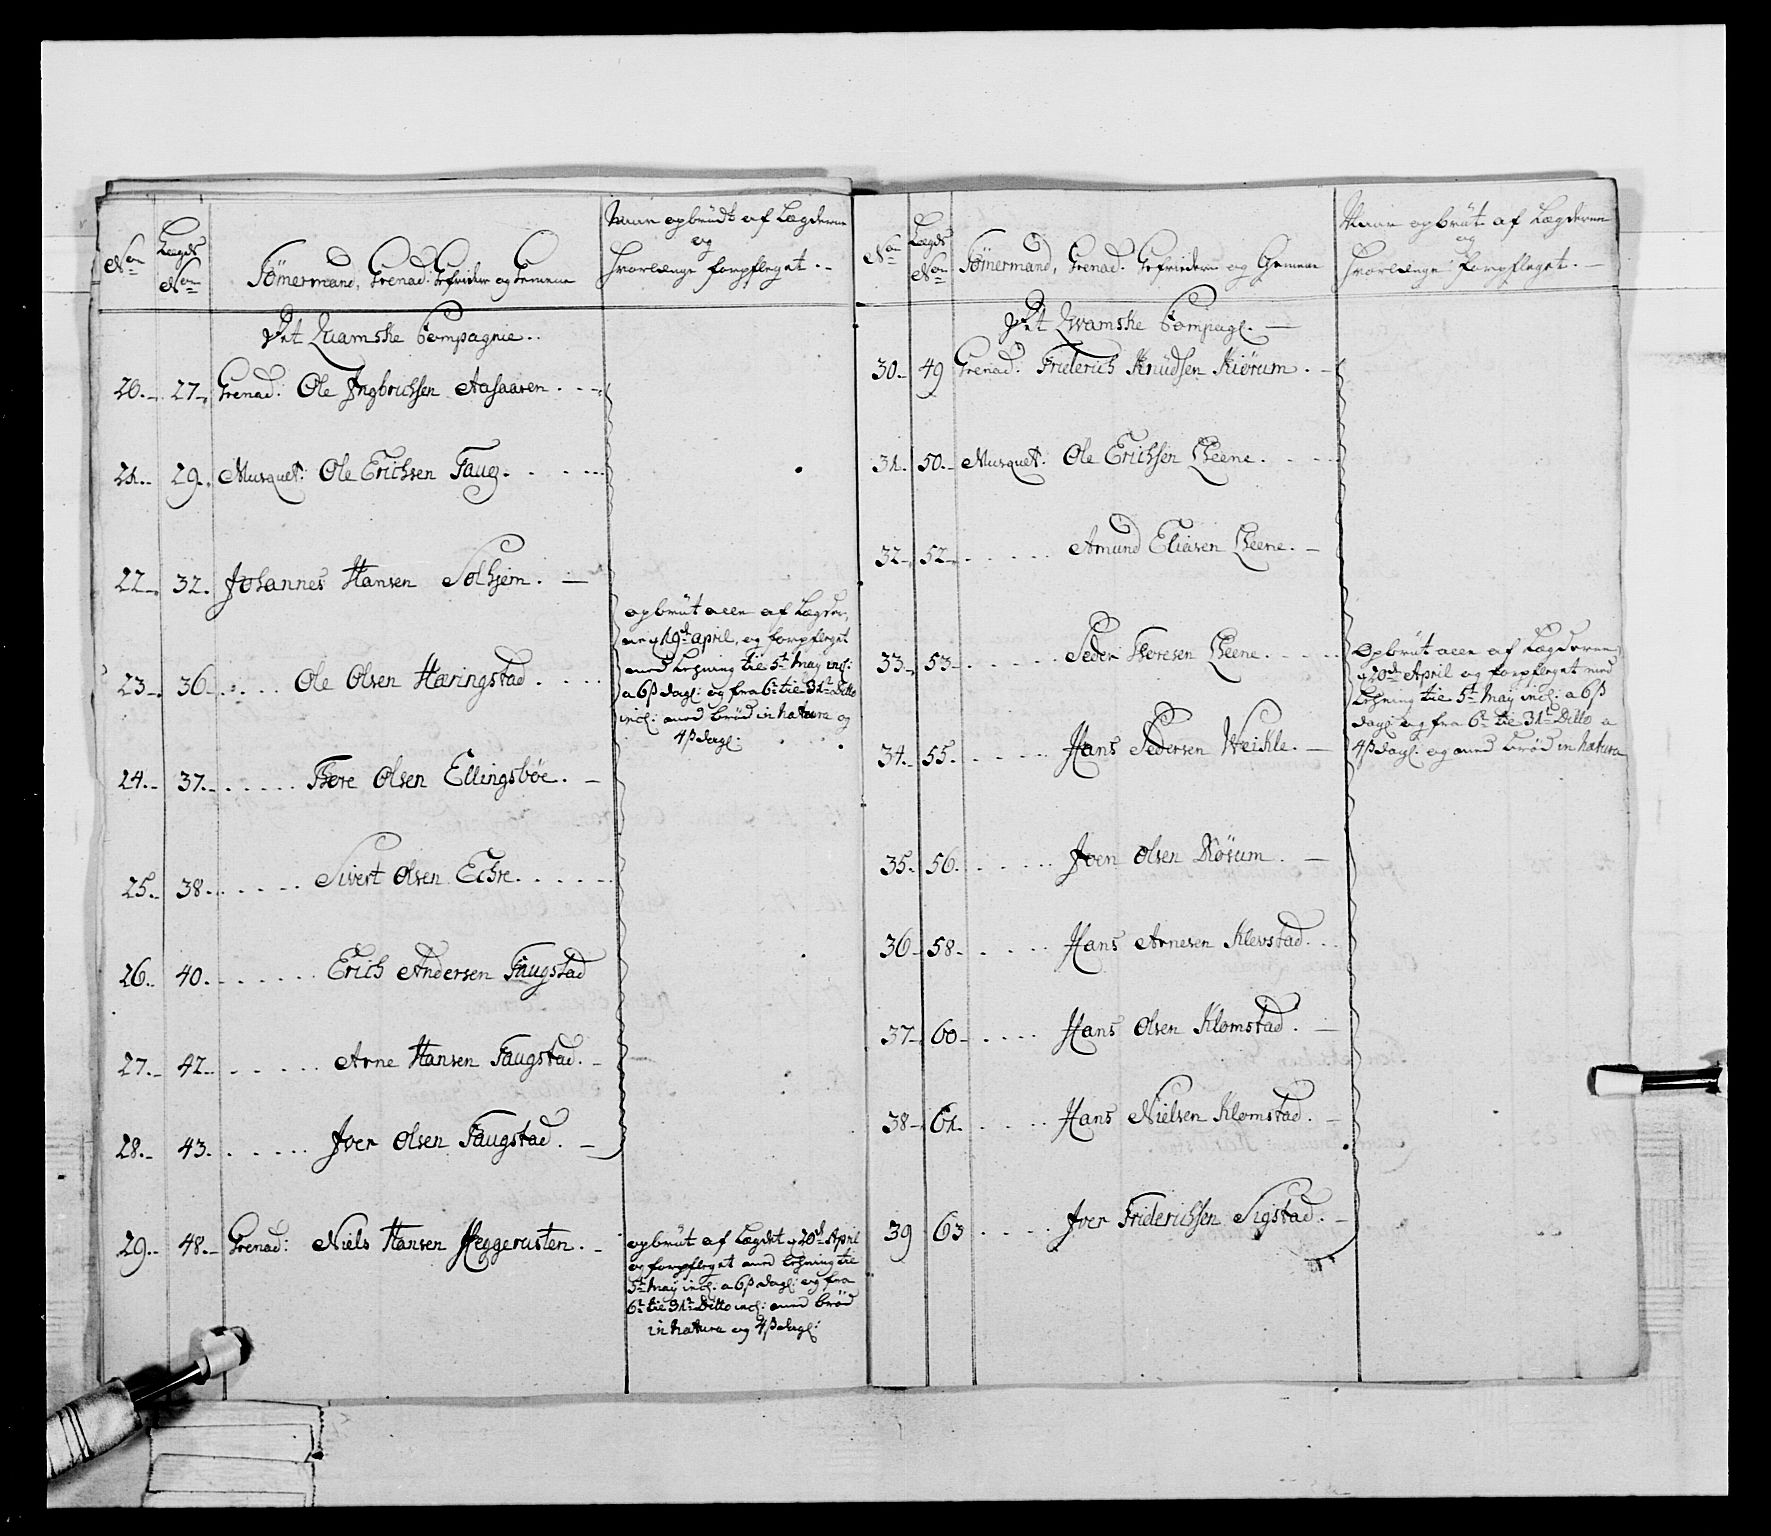 Non
Lægds Non
Tömermand, Grenad: Gefriedere og Gemene
Naar opbrudt af Lægderne
og
Hvorlænge forpfleget.-
Det Quamske Compagnie..
20.- 27.- Grenad: Ole Ingbrichsen Aasaaren . - -
21.- 29.- Musquet: Ole Erichsen Faug. . . . .
22.- 32. Johannes Hansen Solhjem . —
23.- 36.- . . . . Ole Olsen Hæringstad . . . .
opbrut alle af Lægder,
ne d 19de april, og forpfleget
med Lehning tie 5te May incl:
a 6ß dagl: og fra 6te tie 31te Ditto
incl: med brød in natura og
4ß dagl:
24.- 37.- . . . . . Thore Olsen Ellingsbøe . —
25.- 38.- . . . . . Sivert Olsen Echre. . . . . .
26.- 40. . . . . . . Erich Andersen Faugstad
27.- 42.- . . . . . . Arne Hansen Faugstad. -
28.- 43.- . . . . . Iver Olsen Faugstad. —
29.- 48.- Grenad: Niels Hansen Heggerusten. -
opbrut af Lægdet d 20de April
og forpfleget med Lehning tie
5te May incl: a 6ß dagl: og fra
6te tie 31te Ditto incl: med brød
in natura og 4ß dagl:
Non
Lægds Non
Tömermand, Grenad: Gefriedere og Gemene
Naar opbrut af Lægderne
og
Hvorlænge forpfleget. —
Det Qvamske Compagl. —
30.- 49 Grenad: Friderich Knudsen Kiørum . -
31. 50.- Musquet: Ole Erichsen Lheene . . . .
32.- 52.- . . . . . Amund Eliasen Lheene. —
33.- 53.- . . . . . Peder Thoresen Lheene . . . .
Opbrut alle af Lægderne
d 20de April og forpfleget med
Lehning tie 5te May incl: a 6ß
dagl: og fra 6te tie 31te Ditto a
4ß dagl: og med brød in natura
34.- 55. . . . . . Hans Pedersen Weikle. —
35.- 56. . . . . . Joen Olsen Røsum . —
36.- 58.- . . . . Hans Arnesen Klevstad. . .
37.- 60.- . . . . Hans Olsen Klomstad . —
38.- 61. . . . . Hans Nielsen Klomstad. —
39 63 . . . . Iver Friderichsen Sigstad. -